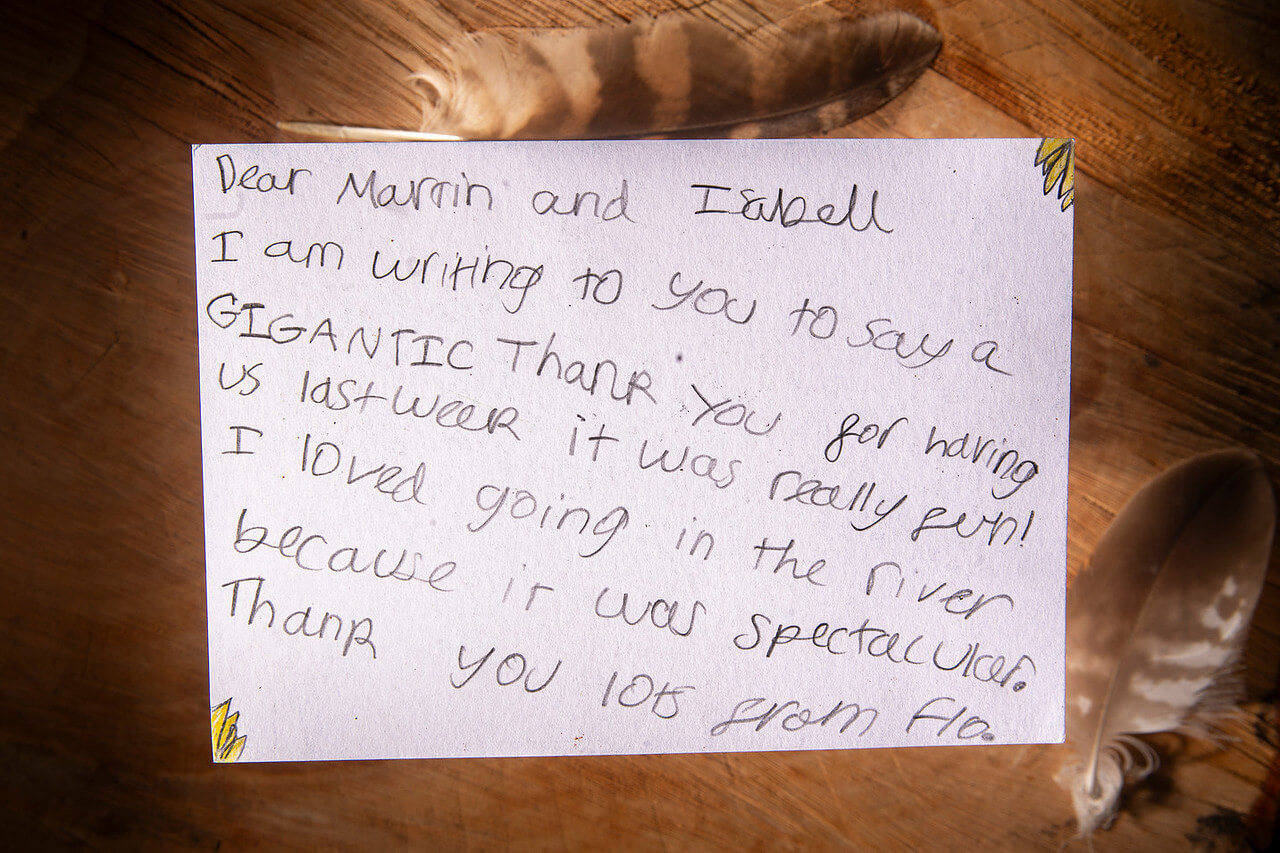 Dear Martin and Isabell
I am writing to you to say a
GIGANTIC Thank you for having
us last week it was really fun!
I loved going in the river
because it was spectacular.
Thank you lots from Flo.